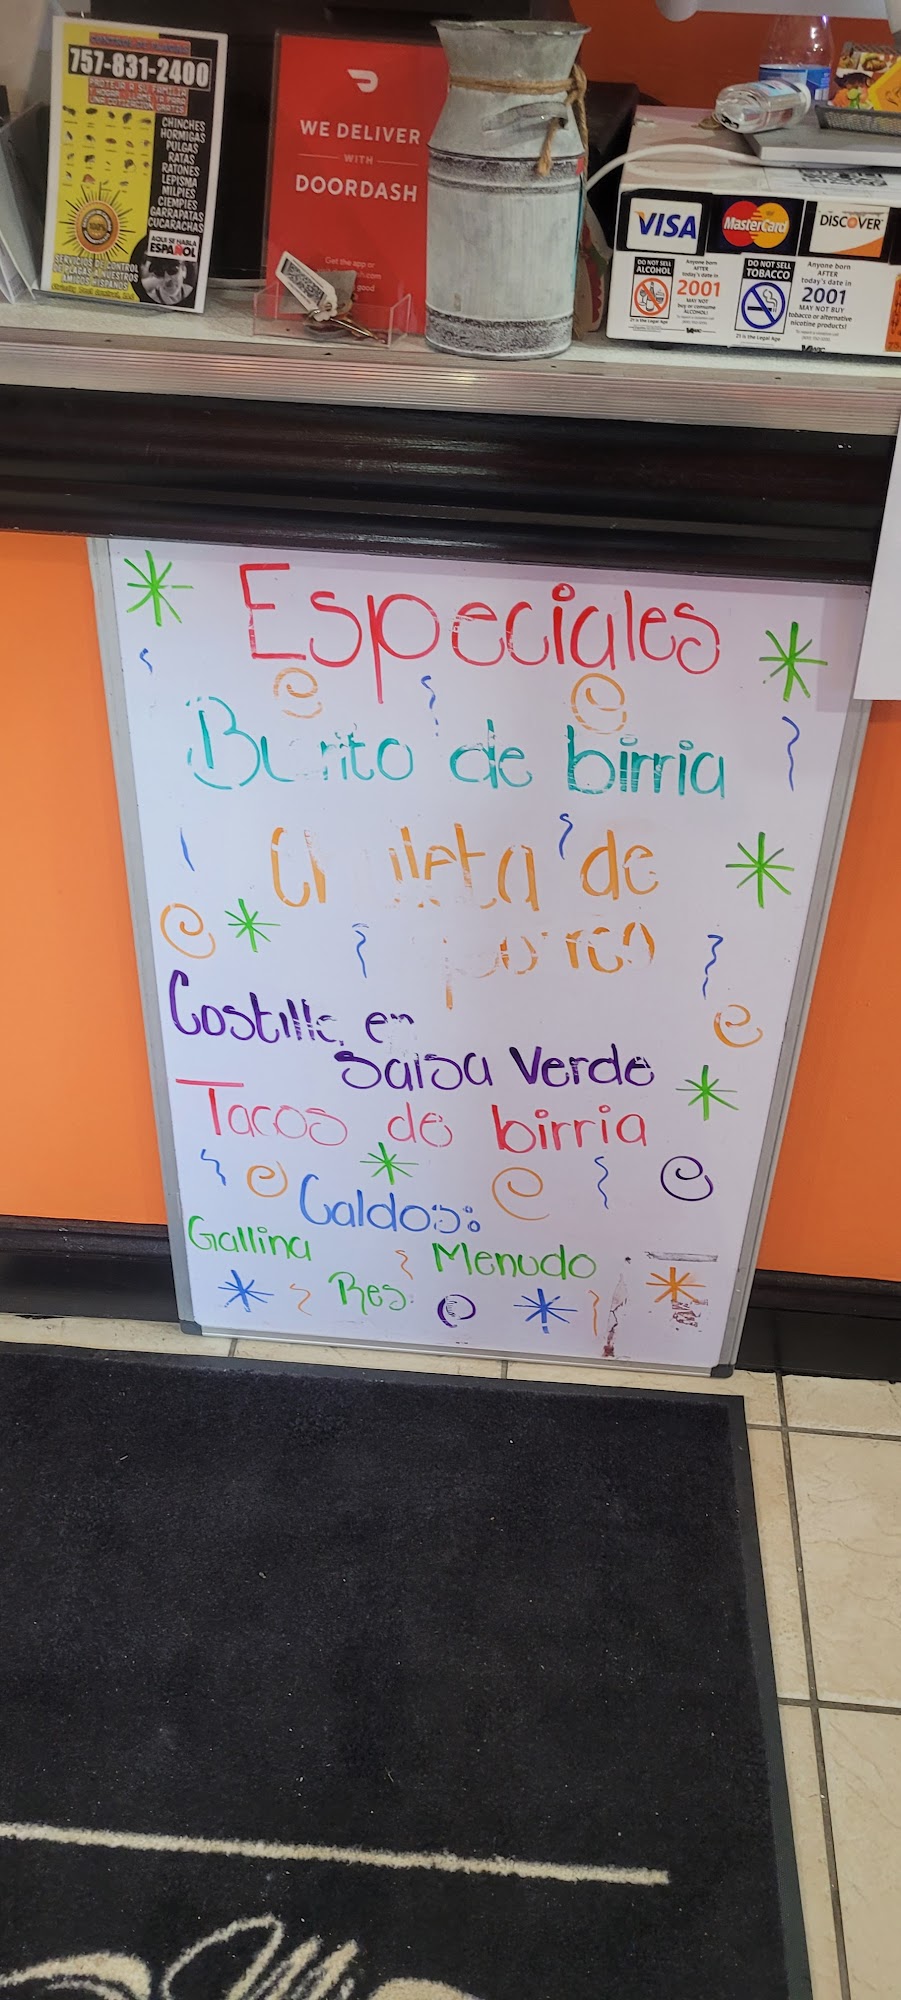 757-831-2400
CHINCHES
HORMIGAS
PULGAS
RATAS
RATONES
LEPISMA
MILPIES
CIEMPIES
GARRAPATAS
CUCARACHAS
AQUI SE HABLA
ESPAÑOL
SERVICIOS DE CONTROL
DE PLAGAS A NUESTROS
AMIGOS HISPANOS
WE DELIVER
WITH
DOORDASH
Get the app or
good
VISA
MasterCard
DISCOVER
DO NOT SELL
ALCOHOL
Anyone born
AFTER
today's date in
2001
MAY NOT
buy or consume
ALCOHOL!
21 is the Legal Age
DO NOT SELL
TOBACCO
Anyone born
AFTER
today's date in
2001
MAY NOT BUY
tobacco or alternative
nicotine products!
21 is the Legal Age
Especiales
Burrito de birria
de
porco
Costilla en
salsa Verde
Tacos de birria
Caldos:
Gallina
Menudo
Res.